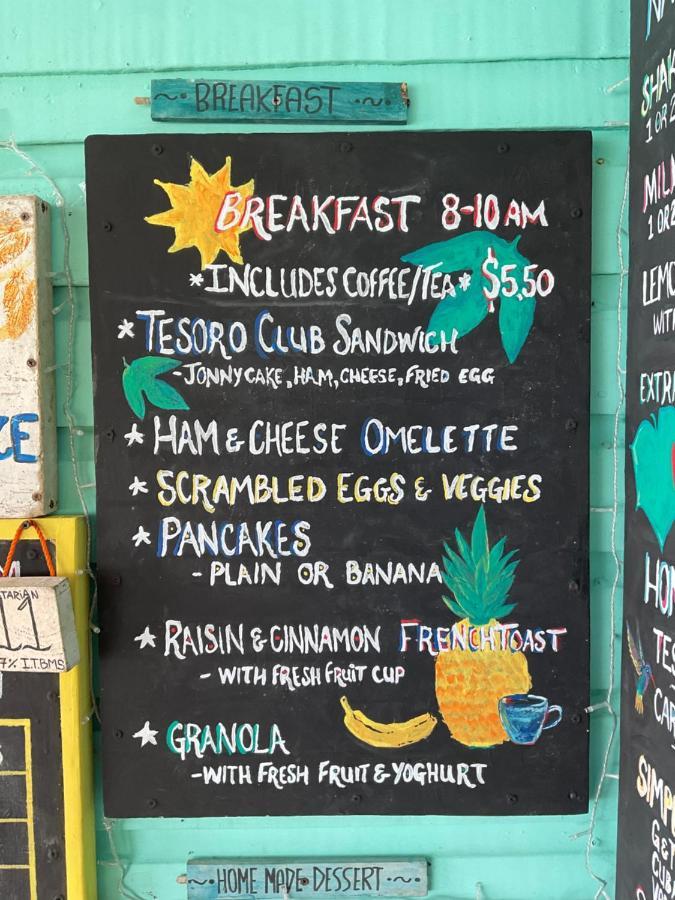 ~ BREAKFAST ~
BREAKFAST 8-10 AM
*INCLUDES COFFEE/TEA* $5,50
* TESORO CLUB SANDWICH
-JONNYCAKE, HAM, CHEESE, FRIED EGG
* HAM & CHEESE OMELETTE
* SCRAMBLED EGGS & VEGGIES
* PANCAKES
- PLAIN OR BANANA
* RAISIN & CINNAMON FRENCH TOAST
- WITH FRESH FRUIT CUP
* GRANOLA
-WITH FRESH FRUIT & YOGHURT
~ HOME MADE DESSERT ~
11
7% I.T.BMS
1 OR
1 OR
WITH